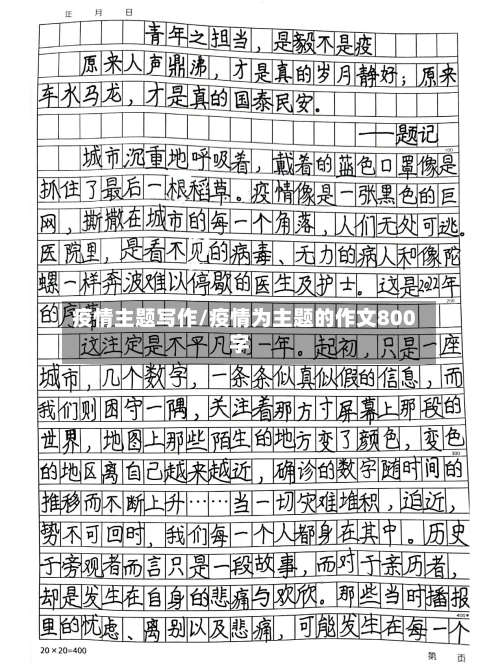 年 月 日
青年之担当，是毅不是疫
原来人声鼎沸，才是真的岁月静好；原来
车水马龙，才是真的国泰民安。
——题记
100
城市沉重地呼吸着，戴着的蓝色口罩像是
抓住了最后一根稻草。疫情像是一张黑色的巨
网，撕撒在城市的每一个角落，人们无处可逃。
医院里，是看不见的病毒、无力的病人和像陀
螺一样奔波难以停歇的医生及护士。这是2022年
200
的序幕
疫情主题写作/疫情为主题的作文800
字
这注定是不平凡的一年。起初，只是一座
城市，几个数字，一条条似真似假的信息，而
我们则困守一隅，关注着那方寸屏幕上那段的
世界，地图上那些陌生的地方变了颜色，变色
300
的地区离自己越来越近，确诊的数字随时间的
推移而不断上升……当一切灾难堆积，迫近，
势不可回时，我们每一个人都身在其中。历史
于旁观者而言只是一段故事，而对于亲历者，
却是发生在自身的悲痛与欢欣。那些当时播报
400
里的忧虑、离别以及悲痛，可能发生在每一个
20×20=400
第 页